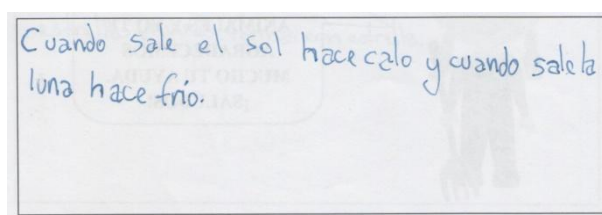 Cuando sale el sol hace calo y cuando sale la
luna hace frio.